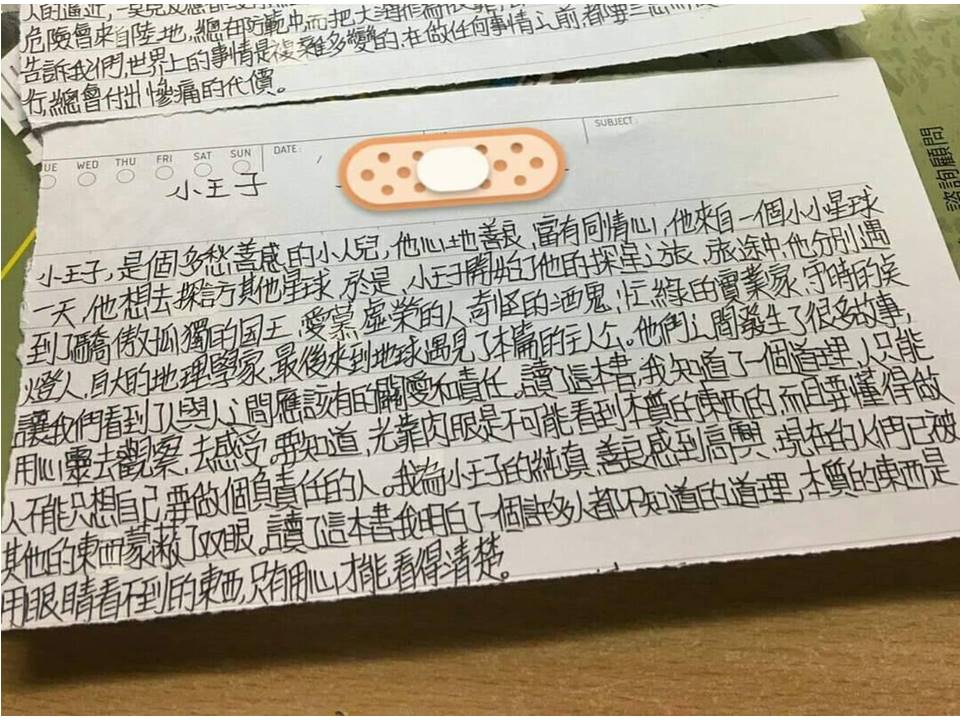 危險會來自陸地,總在防範中,而把大海作為
告訴我們,世界上的事情是複雜多變的,在做任何事情之前,都要三思
行,總會付出慘痛的代價。
UE WED THU FRI SAT SUN DATE: / SUBJECT:
小王子
小王子,是個多愁善感的小人兒,他心地善良,富有同情心,他來自一個小小星球
一天,他想去探訪其他星球,於是,小王子開始了他的探星之旅,旅途中,他分別遇
到了驕傲孤獨的國王、愛慕虛榮的人、奇怪的酒鬼、忙綠的實業家、守時的点
燈人、自大的地理學家,最後來到地球遇見了本篇的主人公。他們之間發生了很多的事,
讓我們看到了人與人之間應該有的關愛和責任。讀了這本書,我知道了一個道理,人只能
用心靈去觀察,去感受。要知道,光靠肉眼是不可能看到本質的東西的,而且要懂得做
人不能只想自己,要做個負責任的人。我為小王子的純真、善良感到高興、現在的人們已被
其他的東西蒙敝了双眼。讀了這本書我明白了一個許多人都不知道的道理,本質的東西是
用眼睛看不到的東西,只有用心才能看得清楚。
諮詢顧問